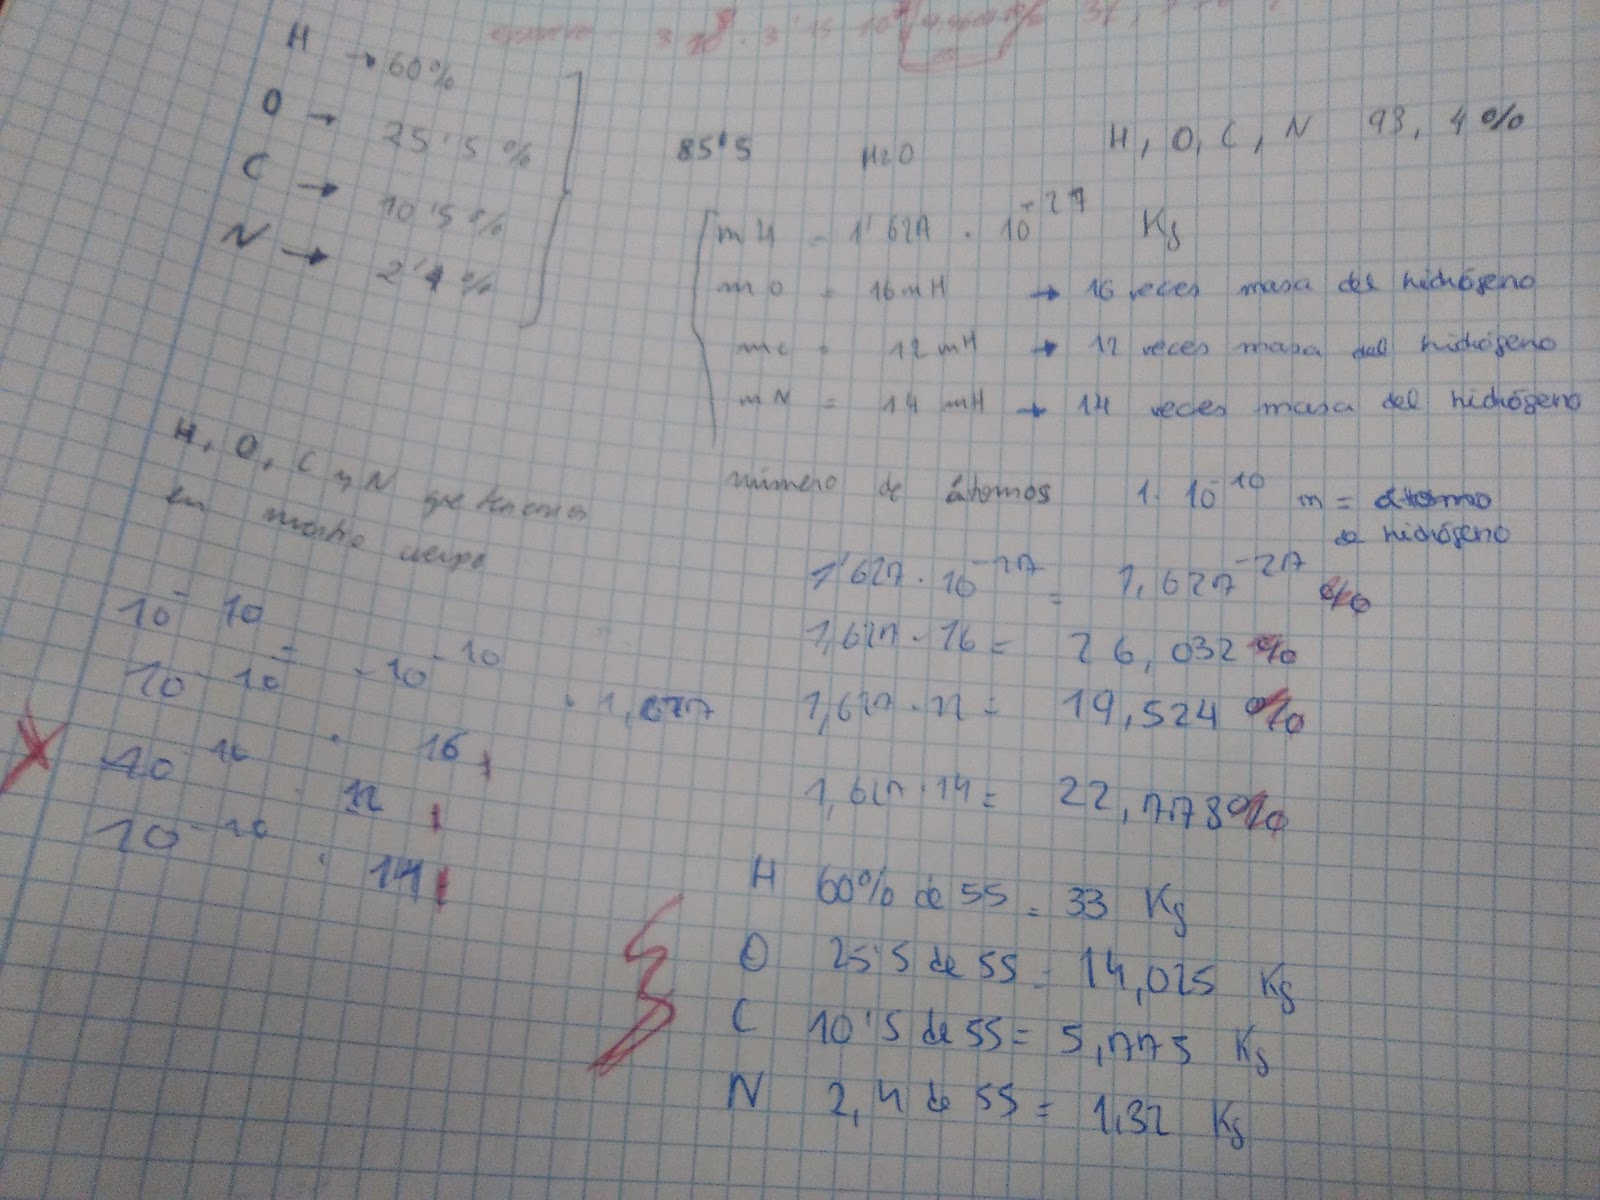 H → 60%
O → 25'5%
C → 10'5%
N → 2'4%
85'5 H2O H, O, C, N 98, 4%
mH = 1'627 · 10-27 Kg
mO = 16mH → 16 veces masa del hidrógeno
mc = 12mH → 12 veces masa del hidrógeno
mN = 14 mH → 14 veces masa del hidrógeno
H, O, C y N que tenemos
en nuestro cuerpo
número de átomos 1· 10-10 m = átomo
de hidrógeno
10- 10
10- 10 = · 10-10 · 1,677
10-10 · 16
10-10 · 12
10-10 · 14
1'627 · 10-27 = 1,627-27 %
1,627 · 16 = 26,032 %
1,627 · 12 = 19,524 %
1,627 · 14 = 22,778%
H 60% de 55 = 33 Kg
O 25'5 de 55 = 14,025 Kg
C 10'5 de 55 = 5,775 Kg
N 2,4 de 55 = 1,32 Kg